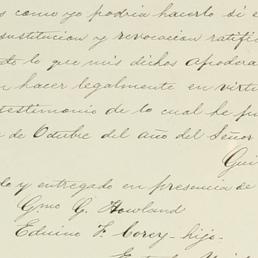 s como yo podria hacerlo si e
sustitucion y revocacion ratifi
to lo que mis dichos apodera
n hacer legalmente en virtu
testimonio de lo cual he fu
de Octubre del año del Señor
Gui
do y entregado en presencia de
Gmo G. Howland
Eduino F. Corey - hijo.